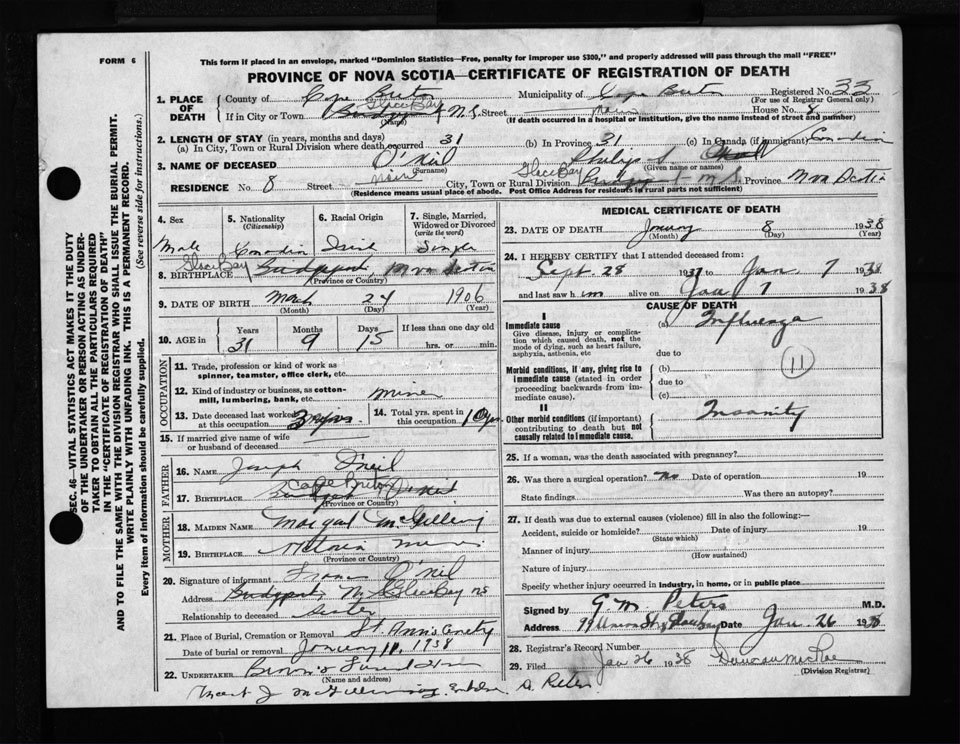 FORM 6
This form if placed in an envelope, marked "Dominion Statistics—Free, penalty for improper use $300," and properly addressed will pass through the mail "FREE"
PROVINCE OF NOVA SCOTIA—CERTIFICATE OF REGISTRATION OF DEATH
SEC. 46—VITAL STATISTICS ACT MAKES IT THE DUTY
OF THE UNDERTAKER OR PERSON ACTING AS UNDER-
TAKER TO OBTAIN ALL THE PARTICULARS REQUIRED
IN THE "CERTIFICATE OF REGISTRATION OF DEATH"
AND TO FILE THE SAME WITH THE DIVISION REGISTRAR WHO SHALL ISSUE THE BURIAL PERMIT.
WRITE PLAINLY WITH UNFADING INK. THIS IS A PERMANENT RECORD.
Every item of information should be carefully supplied. (See reverse side for instructions.)
1. PLACE OF DEATH
County of Cape Breton Municipality of Cape Breton Registered No. 33
(For use of Registrar General only)
If in City or Town Glace Bay N.S. Street Main House No. 8
(Name) (If death occurred in a hospital or institution, give the name instead of street and number)
2. LENGTH OF STAY (in years, months and days)
(a) In City, Town or Rural Division where death occurred 31 (b) In Province 31 (c) In Canada (if immigrant) Canadian
3. NAME OF DECEASED O'Neil Philip
(Surname) (Given name or names)
RESIDENCE No. 8 Street Main City, Town or Rural Division Glace Bay Bridgeport N.S. Province Nova Scotia
(Residence means usual place of abode. Post Office Address for residents in rural parts not sufficient)
4. Sex Male
5. Nationality (Citizenship) Canadian
6. Racial Origin Irish
7. Single, Married, Widowed or Divorced (write the word) Single
8. BIRTHPLACE Glace Bay Bridgeport, Nova Scotia
(Province or Country)
9. DATE OF BIRTH March 24 1906
(Month) (Day) (Year)
10. AGE in Years 31 Months 9 Days 15 If less than one day old hrs. or min.
OCCUPATION
11. Trade, profession or kind of work as spinner, teamster, office clerk, etc.
12. Kind of industry or business, as cotton-mill, lumbering, bank, etc. Miner
13. Date deceased last worked at this occupation 3 yrs
14. Total yrs. spent in this occupation 10 yrs
15. If married give name of wife or husband of deceased
FATHER
16. NAME Joseph O'Neil
17. BIRTHPLACE Cape Breton
(Province or Country)
MOTHER
18. MAIDEN NAME Margaret
19. BIRTHPLACE Victoria Mines
(Province or Country)
20. Signature of informant O'Neil
Address Bridgeport, N.S. Glace Bay NS
Relationship to deceased Sister
21. Place of Burial, Cremation or Removal St. Ann's Cemetery
Date of burial or removal January 11, 1938
22. UNDERTAKER Funeral Home
(Name and address)
MEDICAL CERTIFICATE OF DEATH
23. DATE OF DEATH January 8 1938
(Month) (Day) (Year)
24. I HEREBY CERTIFY that I attended deceased from:
Sept. 28 1937 to Jan 7 1938
and last saw him alive on Jan 7 1938
CAUSE OF DEATH
I
Immediate cause (a) Influenza
Give disease, injury or complication which caused death, not the mode of dying, such as heart failure, asphyxia, asthenia, etc
due to
Morbid conditions, if any, giving rise to immediate cause (stated in order proceeding backwards from immediate cause).
(b)
due to
(c)
11
II
Other morbid conditions (if important) contributing to death but not causally related to immediate cause. Insanity
25. If a woman, was the death associated with pregnancy?
26. Was there a surgical operation? No Date of operation 19
State findings Was there an autopsy?
27. If death was due to external causes (violence) fill in also the following:—
Accident, suicide or homicide? Date of injury 19
(State which)
Manner of injury
(How sustained)
Nature of injury
Specify whether injury occurred in industry, in home, or in public place
Signed by G. M. Peters M.D.
Address 99 Union St Glace Bay Date Jan. 26 1938
28. Registrar's Record Number
29. Filed Jan 26 1938 Duncan MacRae
(Division Registrar)